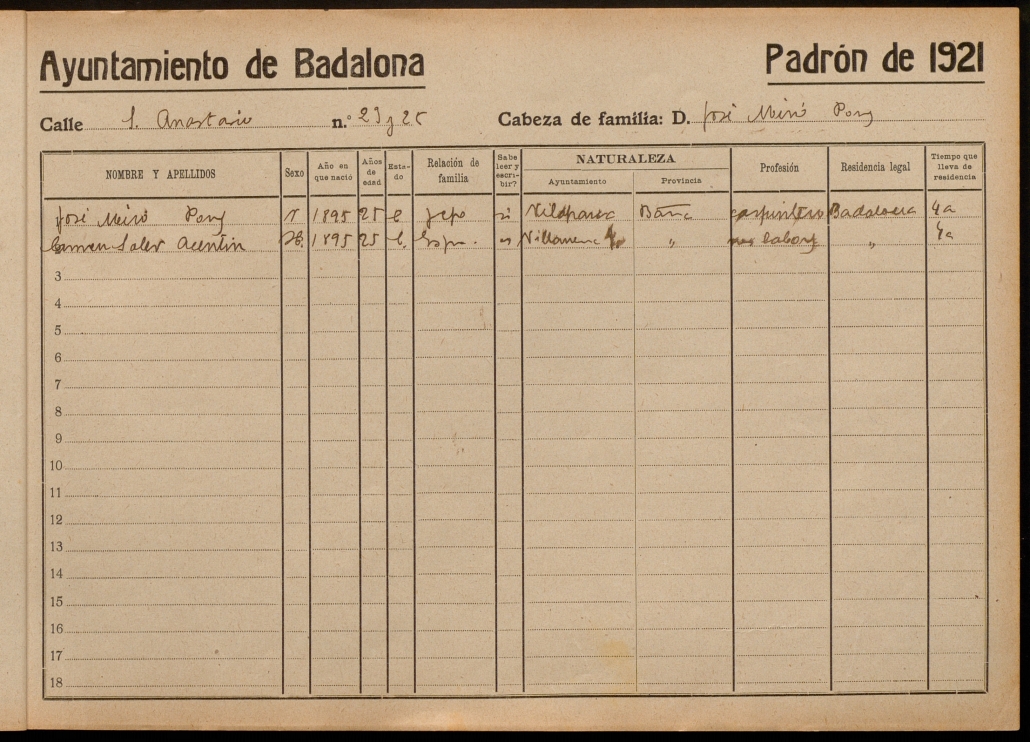 Ayuntamiento de Badalona
Padrón de 1921
Calle S. Anastasio n.º 23 y 25
Cabeza de familia: D. José Miró Pons
NOMBRE Y APELLIDOS Sexo Año en que nació Años de edad Esta-do Relación de familia Sabe leer y escri-bir? NATURALEZA Ayuntamiento Provincia Profesión Residencia legal Tiempo que lleva de residencia
José Miró Pons V 1895 25 c Jefe si Bna carpintero Badalona 4 a
Carmen Soler H. 1895 25 c. Espa. Villanueva " sus labors " 4 a
3
4
5
6
7
8
9
10
11
12
13
14
15
16
17
18